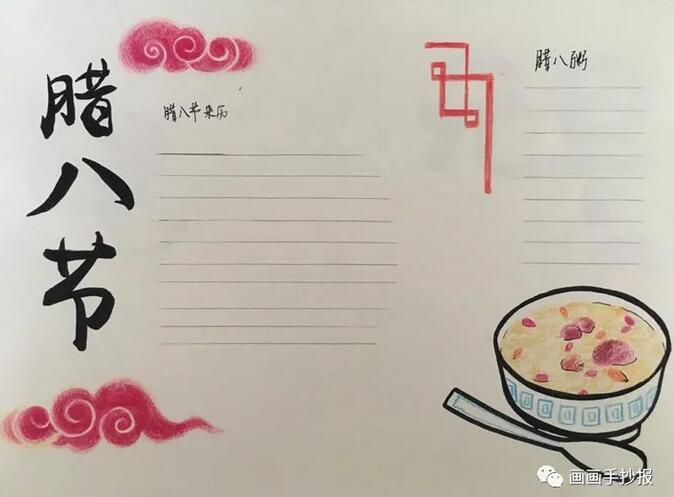 腊八节
腊八节来历
腊八粥
画画手抄报